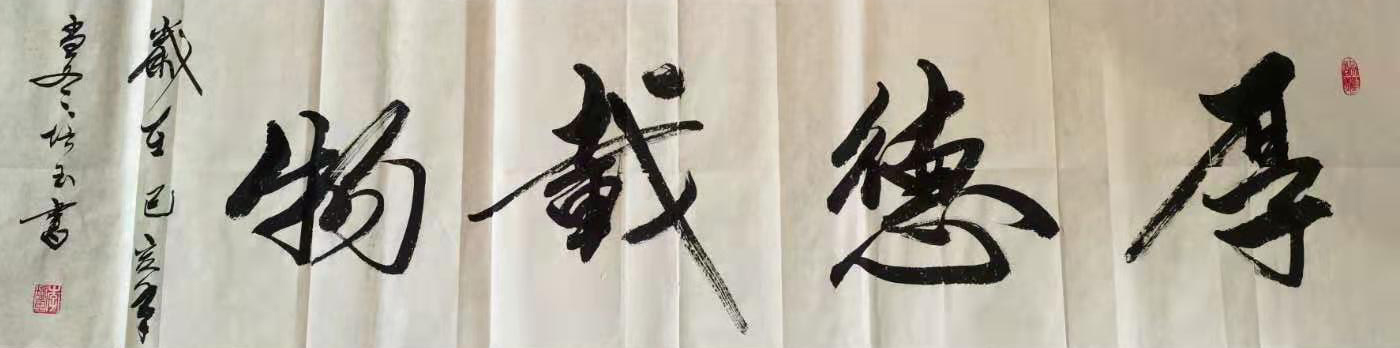 厚德載物
歲在己亥年
培玉書